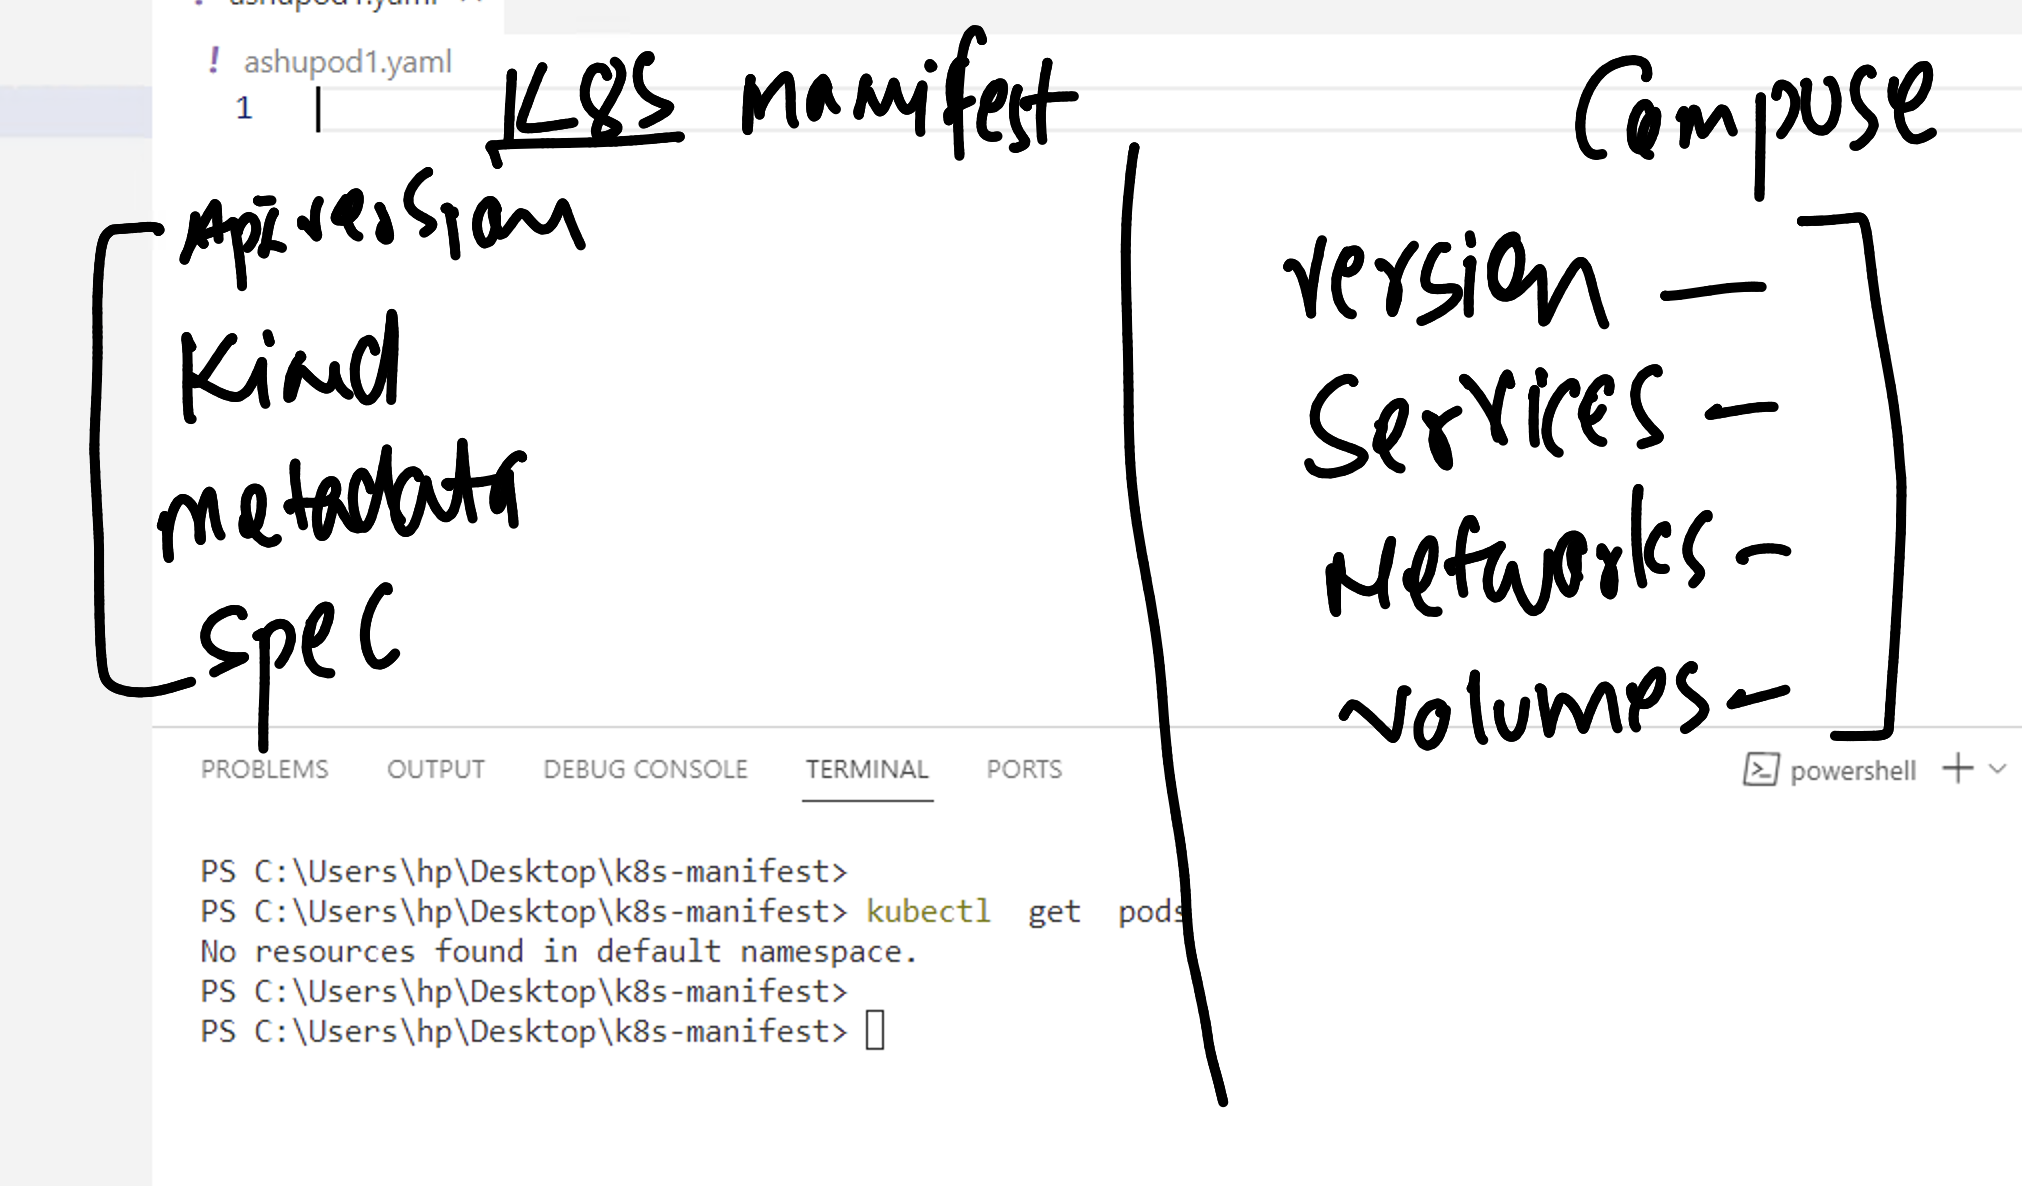 ! ashupod1.yaml
! ashupod1.yaml
1
K8S manifest
Compose
ApiVersion
Kind
metadata
Spec
version -
Services -
Networks -
volumes -
PROBLEMS OUTPUT DEBUG CONSOLE TERMINAL PORTS
powershell
PS C:\Users\hp\Desktop\k8s-manifest>
PS C:\Users\hp\Desktop\k8s-manifest> kubectl get pods
No resources found in default namespace.
PS C:\Users\hp\Desktop\k8s-manifest>
PS C:\Users\hp\Desktop\k8s-manifest>